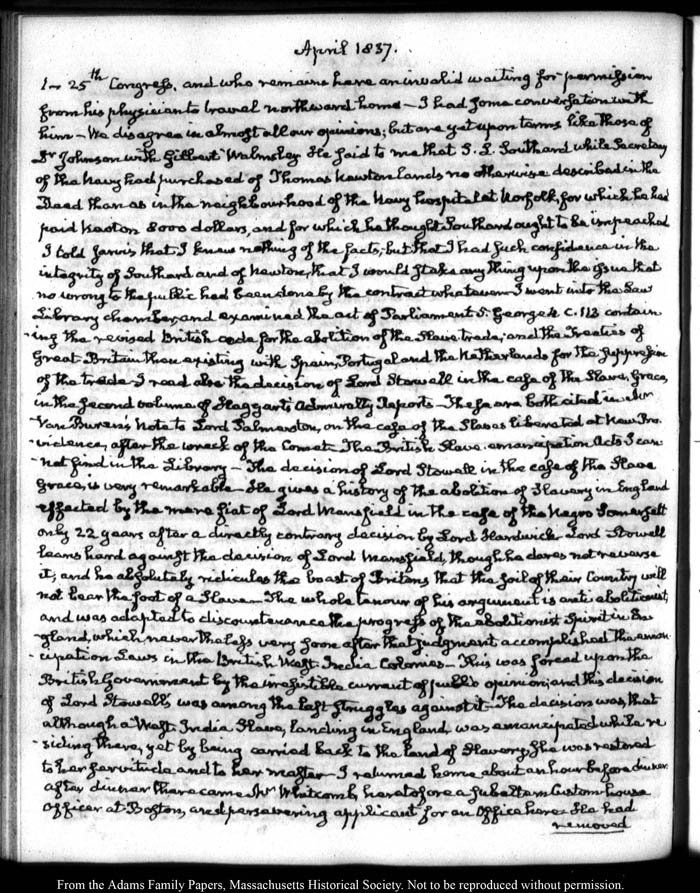 April 1837.
25th Congress, and who remains here an invalid waiting for permission
from his physician to travel northward home — I had some conversation with
him — We disagree in almost all our opinions; but are yet upon terms like those of
Dr Johnson with Gilbert Walmsley He said to me that S. L. Southard while Secretary
of the Navy had purchased of Thomas Newton lands no otherwise described in the
Deed than as in the neighbourhood of the Navy hospital at Norfolk, for which he had
paid Newton 8000 dollars, and for which he thought Southard ought to be impeached
I told Jarvis that I knew nothing of the facts, but that I had such confidence in the
integrity of Southard and of Newton, that I would stake any thing upon the issue that
no wrong to the public had been done by the contract whatever. I went into the Law
Library chamber, and examined the act of Parliament 5. George 4 C. 113 contain
-ing the revised British code for the abolition of the Slave trade; and the Treaties of
Great Britain then existing with Spain, Portugal and the Netherlands for the suppression
of the trade — I read also the decision of Lord Stowell in the case of the Slave, Grace,
in the second volume of Haggart's Admiralty Reports — These are both cited in Mr
Van Buren's Note to Lord Palmerston, on the case of the Slaves liberated at New Pro-
vidence, after the wreck of the Comet — The British Slave emancipation Acts I can-
not find in the Library — The decision of Lord Stowell in the case of the Slave
Grace, is very remarkable — He gives a history of the abolition of Slavery in England
effected by the mere fiat of Lord Mansfield in the case of the Negro Somersett
only 22 years after a directly contrary decision by Lord Hardwick Lord Stowell
leans hard against the decision of Lord Mansfield, though he dares not reverse
it; and he absolutely ridicules the boast of Britons, that the soil of their Country will
not bear the foot of a Slave — The whole tenour of his argument is anti-abolitionist,
and was adapted to discountenance the progress of the abolitionist Spirit in En-
-gland, which nevertheless very soon after that judgment accomplished the eman-
cipation Laws in the British West-India Colonies — This was forced upon the
British Government by the irresistible current of public opinion; and this decision
of Lord Stowell's was among the last struggles against it — The decision was, that
although a West India Slave, landing in England, was emancipated while re
-siding there, yet by being carried back to the land of Slavery, she was restored
to her servitude and to her master — I returned home about an hour before dinner
after dinner there came Mr Whitcomb, heretofore a subaltern Custom house
Officer at Boston, and persevering applicant for an Office here — He had
removed
From the Adams Family Papers, Massachusetts Historical Society. Not to be reproduced without permission.